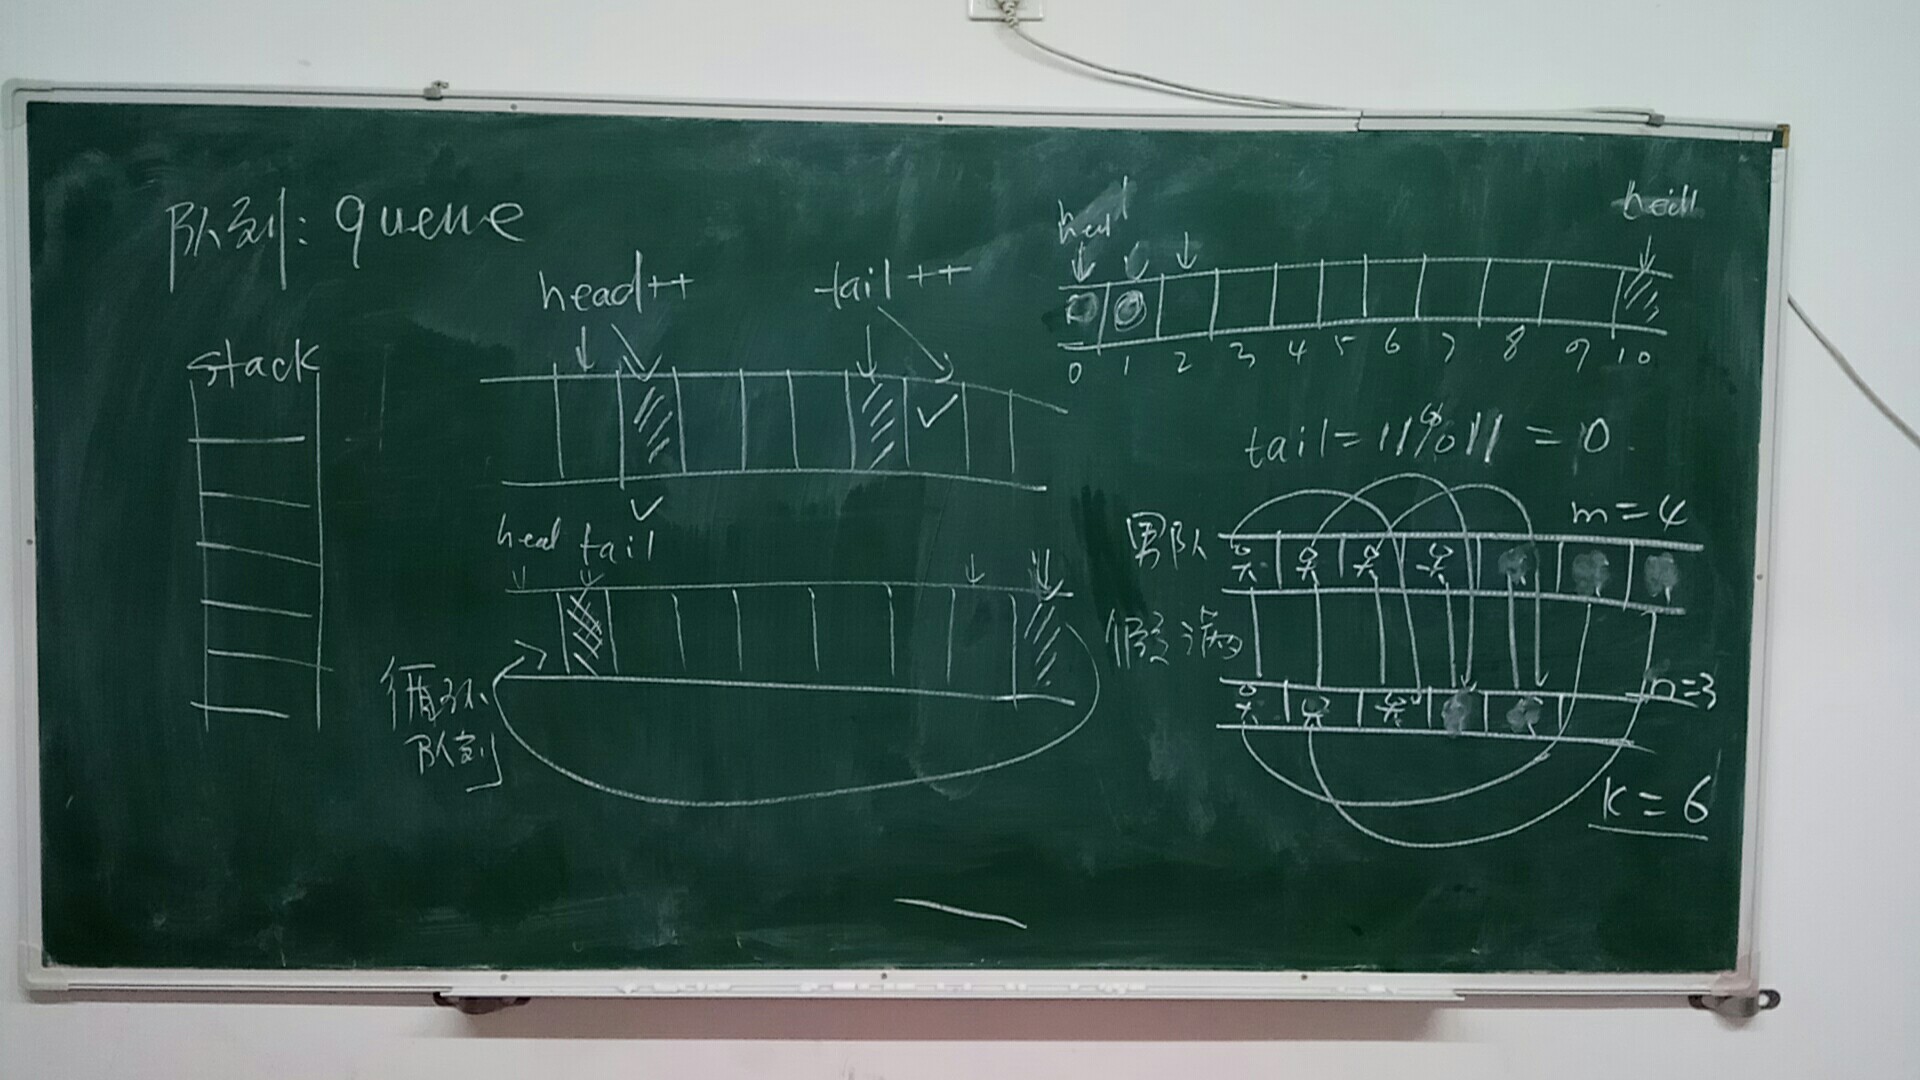 队列: queue
stack
head++
tail++
head tail
循环
队列
head
0 1 2 3 4 5 6 7 8 9 10
tail=11%11=0
男队
m=4
假满
n=3
k=6